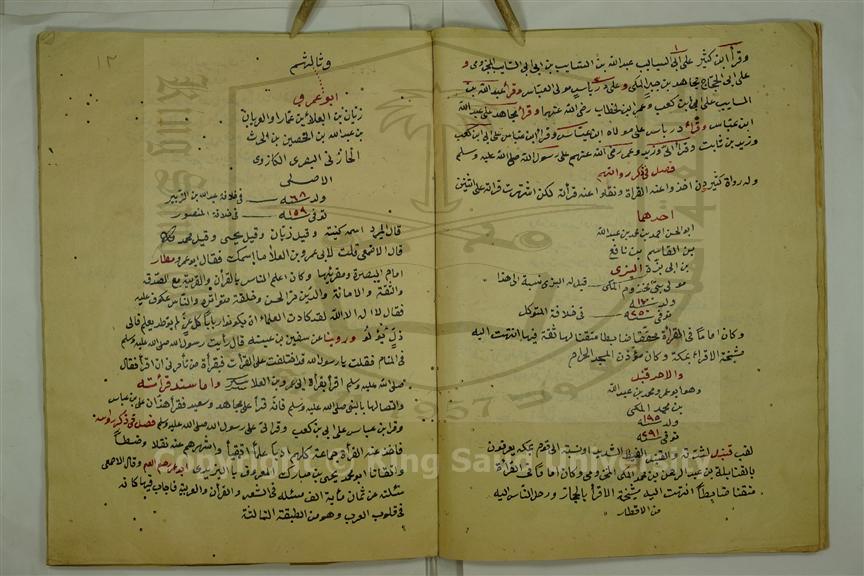 وقرأ ابن كثير على ابى السايب عبدالله بن السايب بن ابى السايب المخزومى و
على ابى الحجاج مجاهد بن جبر المكى وعلى درباس مولى ابن العباس وقرأ عبدالله بن
السايب على ابى بن كعب وعمر ابن الخطاب رضى الله عنهما وقرأ مجاهد على عبدالله
ابن عباس وقرأ درباس على مولاه ابن عباس وقرأ ابن عباس على ابى ابن كعب
وزيد بن ثابت وقرأ ابىّ وزيد وعمر رضى الله عنهم على رسول الله صلى الله عليه وسلم
فصل فى ذكر رواته
وله رواة كثيرون اخذوا عنه القرأة ونقلوا عنه قرأته لكن اشتهرت قرأته على اثنين
احدهما
ابو الحسن احمد بن محمد بن عبدالله
بن القاسم بن نافع
بن ابى بزة البزى
مولى بنى مخزوم المكى قيل له البزى نسبة الى هذا
ولد ١٧٠ سنه
توفى ٢٥٠ سنه فى خلافة المتوكل
وكان اماما فى القرأة محققا ضابطا متقنا لها ثقة فيها انتهت اليه
مشيخة الاقراء بمكة وكان مؤذن المسجد الحرام
والاخر قنبل
وهو ابو عمر ومحمد بن عبدالله
بن محمد المكى
ولد ١٩٥ سنه
توفى ٢٩١ سنه
لقب قنبل والقنبل الغليظ الشديد ونسبة الى قوم بمكه يعرفون
بالقنابلة بن عبد الرحمن بن محمد المكى المخزومى وكان اماما فى القرأة
متقنا ضابطا انتهت اليه مشيخة الاقرأ بالحجاز ورحل الناس اليه
من الاقطار
١٢
وثالثهم
ابو عمرو
زبان بن العلاء بن عمار او العريان
بن عبدالله بن الحصين بن الحرث
المازنى البصرى الكازرونى
الاصلى
ولد ٦٨ سنه فى خلافة عبدالله بن الزبير
توفى ١٥٩ سنه فى خلافة المنصور
قال المبرد اسمه كنيته وقيل زبان وقيل يحيى وقيل محمد
قال الاصمعى قلت لابى عمرو بن العلاء ما اسمك فقال ابو عمرو
امام البصرة ومقريها وكان اعلم الناس بالقرأن والعربية مع الصدق
والثقة والامانة والدين مر الحسن وحلقته متوافرة والناس عكوف عليه
فقال لا اله الا الله لقد كادت العلماء ان يكونوا اربابا كل عز لم يوطد بعلم فالى
ذل يؤل وروينا عن سفين بن عيينه قال رأيت رسول الله صلى الله عليه وسلم
فى المنام فقلت يا رسول الله قد اختلفت على القرأت فبقرأة من تأمرنى ان اقرأ فقال
صلى الله عليه وسلم اقرأ بقرأة ابى عمرو بن العلا واما سند قرأته
واتصالها بالنبى صلى الله عليه وسلم فانه قرأ على مجاهد وسعيد فقرأ هذان على بن عباس
وقرا بن عباس على ابى بن كعب وقرأ ابى على رسول الله صلى الله عليه وسلم فصل فى ذكر رواته
فاخذ عنه القرأة جماعة كلهم واشهرهم عنه نقلا وضبطا
واتقانا ابو محمد يحيى بن مبارك المعروف باليزيدى وقال الاصمعى
سئلته عن ثمان مأية الف مسئلة فى الشعر والقرأن والعربية فاجاب فيها كانه
فى قلوب العرب وهو من الطبقة الثالثة
Copyright © King Saud University
1957